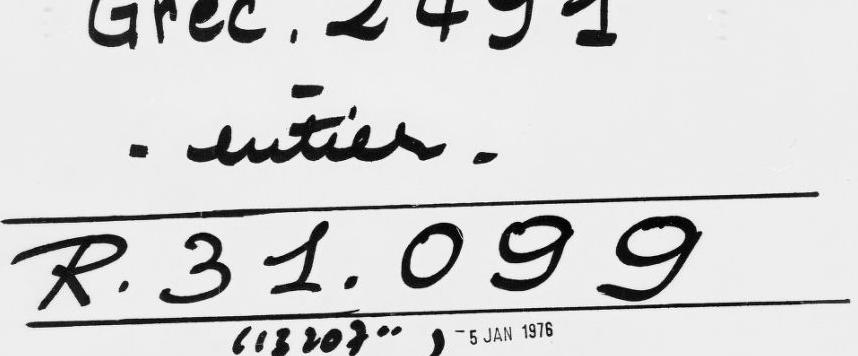 Grec. 2491
- entier -
R. 31.099
- 5 JAN 1976